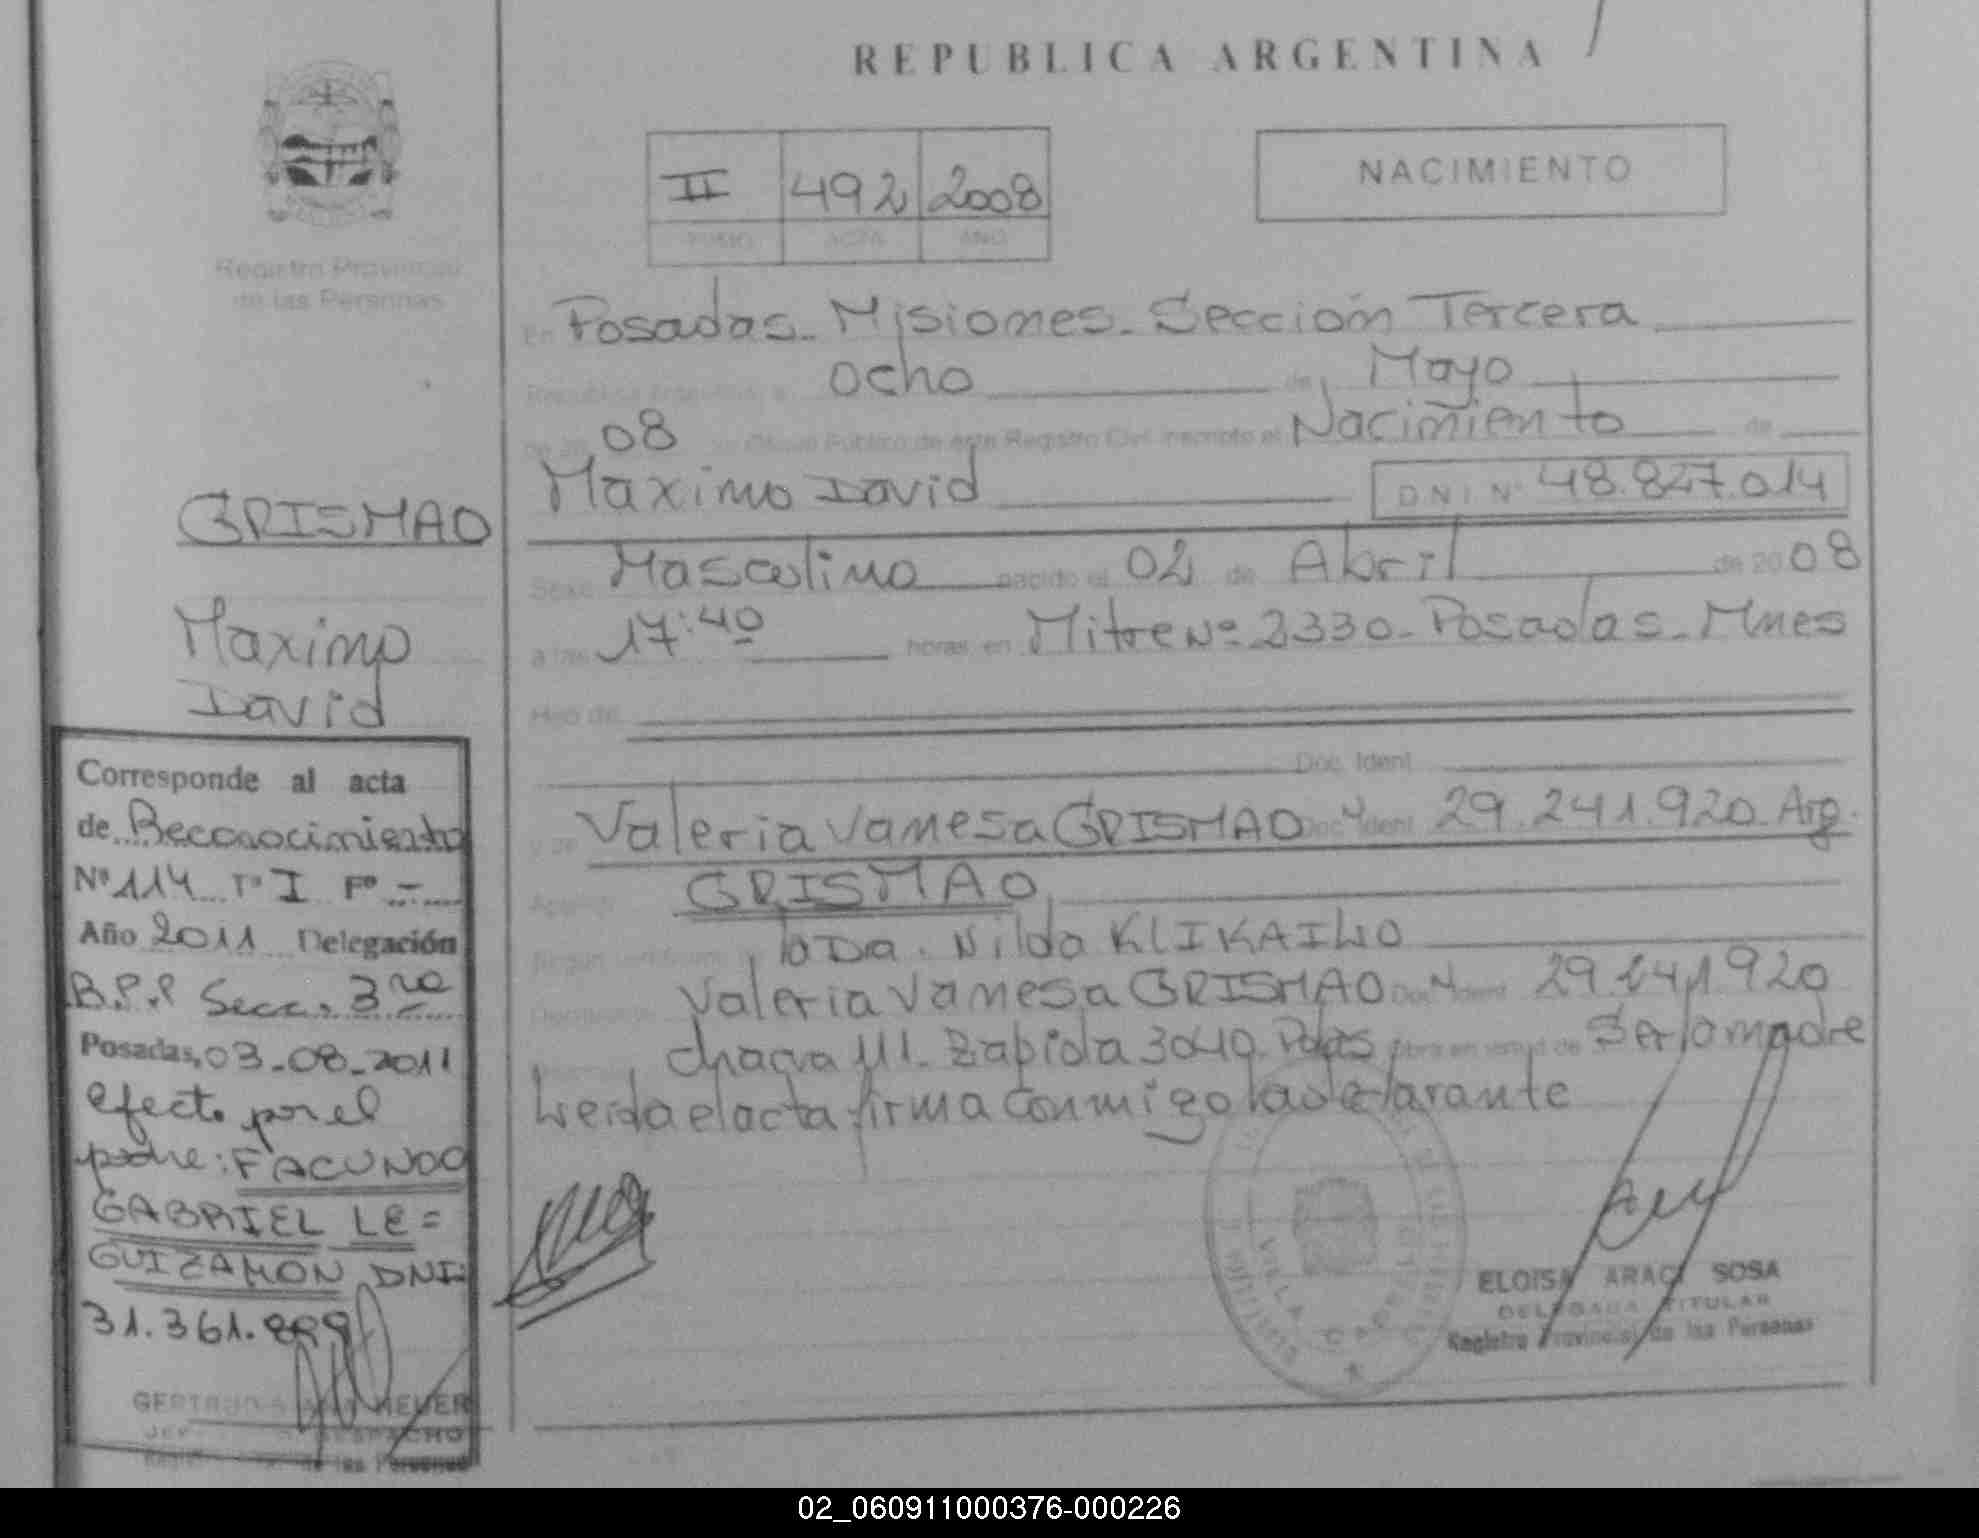 REPUBLICA ARGENTINA
II 492 2008
TOMO ACTA AÑO
NACIMIENTO
Registro Provincial
de las Personas
En Posadas - Misiones - Sección Tercera
República Argentina, a Ocho de Mayo
de 20 08 yo Oficial Público de este Registro Civil inscribo el Nacimiento de
Maximo David
D N I Nº 48.827.014
GRISMAO
Maximo
David
Sexo Masculino nacido el 02 de Abril de 2008
a las 17:40 horas en Mitre Nº 2330 - Posadas - Mnes
Hijo de
Doc. Ident
y de Valeria Vanesa GRISMAO Doc. Ident 29.241.920 Arg.
GRISMAO
Según certificado la Dra. Nilda
Valeria Vanesa GRISMAO Doc. Ident 29.241.920
Domicilio Chacra 111 - Zapiola 3040 Pdas obra en virtud de Ser la madre
Leida el acta firma conmigo la declarante
Corresponde al acta
de Reconocimiento
Nº 114 Tº I Fº -
Año 2011 Delegación
R.P.P Secc. 3ra
Posadas, 03-08-2011
efecto por el
padre: FACUNDO
GABRIEL LE=
GUIZAMON DNI:
31.361.899
ELOISA ARACI SOSA
DELEGADA TITULAR
Registro Provincial de las Personas
MEYER
DESPACHO
de las Personas
VILLA
02_060911000376-000226